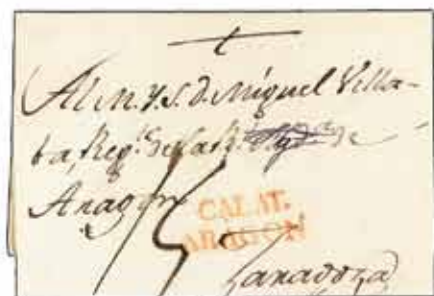 Al M. Y. S. D. Miguel Villa-
ba, Reg.te de la R.l de
Aragon
CALAT.
ARAGON
Zaragoza